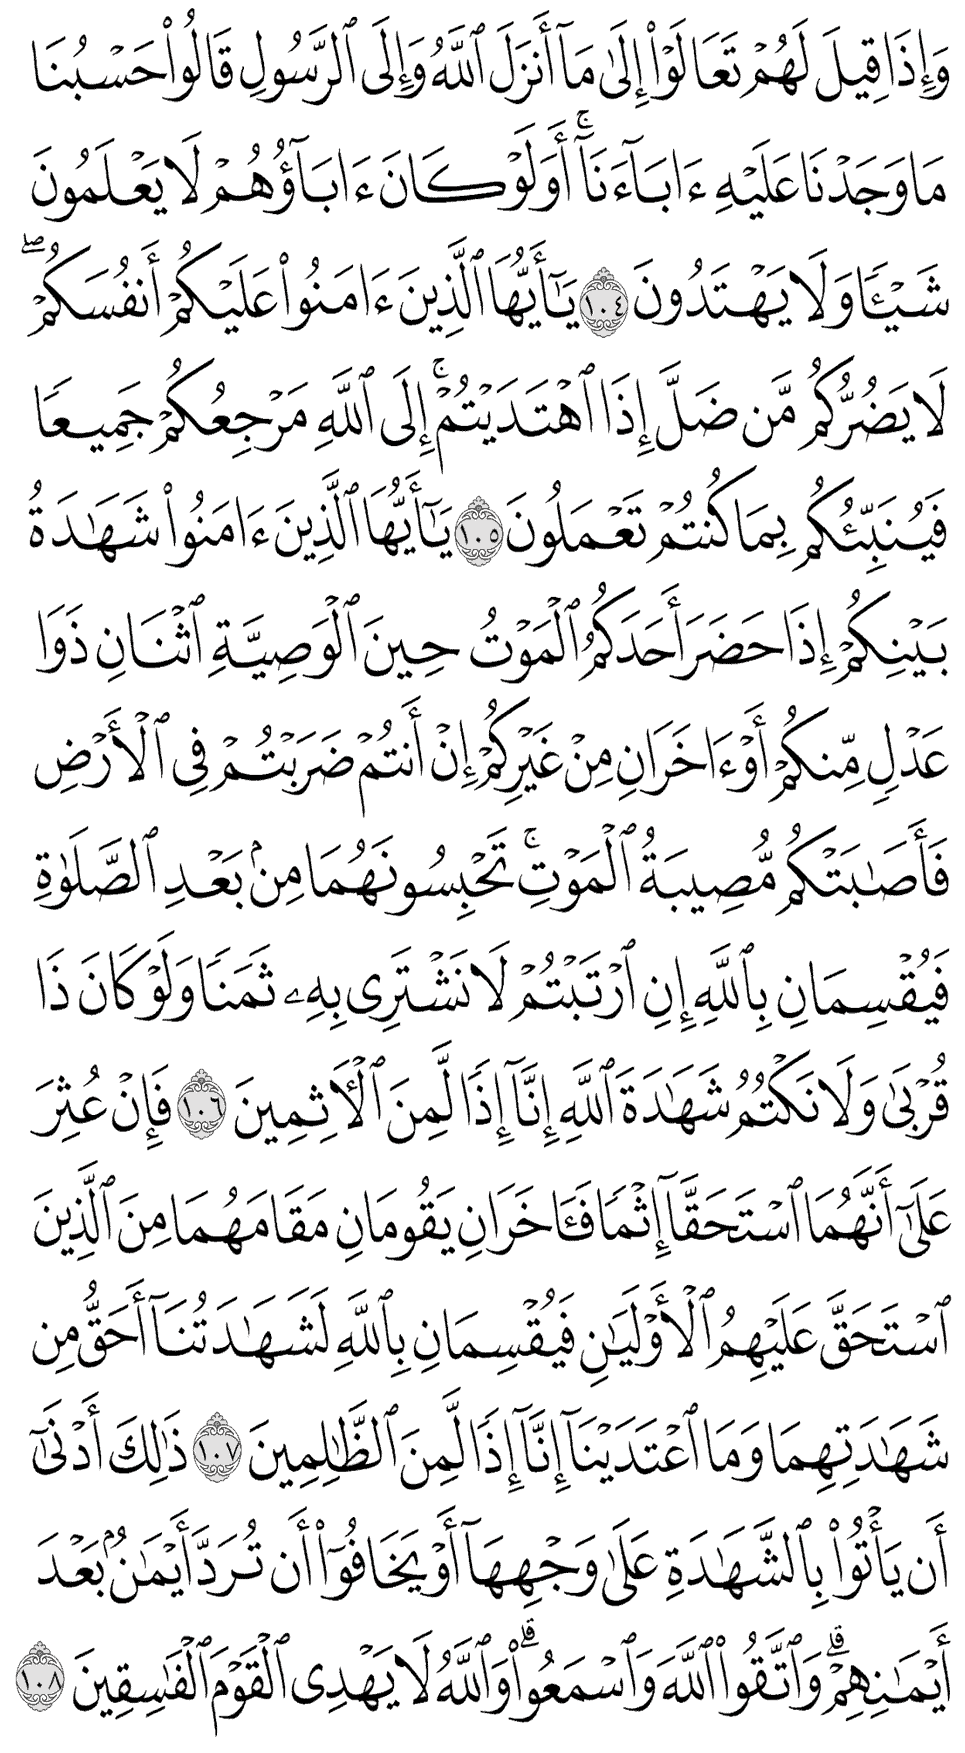 وَإِذَا قِيلَ لَهُمۡ تَعَالَوۡاْ إِلَىٰ مَآ أَنزَلَ ٱللَّهُ وَإِلَى ٱلرَّسُولِ قَالُواْ حَسۡبُنَا
مَا وَجَدۡنَا عَلَيۡهِ ءَابَآءَنَآۚ أَوَلَوۡ كَانَ ءَابَآؤُهُمۡ لَا يَعۡلَمُونَ
شَيۡـٔٗا وَلَا يَهۡتَدُونَ ١٠٤ يَـٰٓأَيُّهَا ٱلَّذِينَ ءَامَنُواْ عَلَيۡكُمۡ أَنفُسَكُمۡۖ
لَا يَضُرُّكُم مَّن ضَلَّ إِذَا ٱهۡتَدَيۡتُمۡۚ إِلَى ٱللَّهِ مَرۡجِعُكُمۡ جَمِيعٗا
فَيُنَبِّئُكُم بِمَا كُنتُمۡ تَعۡمَلُونَ ١٠٥ يَـٰٓأَيُّهَا ٱلَّذِينَ ءَامَنُواْ شَهَٰدَةُ
بَيۡنِكُمۡ إِذَا حَضَرَ أَحَدَكُمُ ٱلۡمَوۡتُ حِينَ ٱلۡوَصِيَّةِ ٱثۡنَانِ ذَوَا
عَدۡلٖ مِّنكُمۡ أَوۡ ءَاخَرَانِ مِنۡ غَيۡرِكُمۡ إِنۡ أَنتُمۡ ضَرَبۡتُمۡ فِي ٱلۡأَرۡضِ
فَأَصَٰبَتۡكُم مُّصِيبَةُ ٱلۡمَوۡتِۚ تَحۡبِسُونَهُمَا مِنۢ بَعۡدِ ٱلصَّلَوٰةِ
فَيُقۡسِمَانِ بِٱللَّهِ إِنِ ٱرۡتَبۡتُمۡ لَا نَشۡتَرِي بِهِۦ ثَمَنٗا وَلَوۡ كَانَ ذَا
قُرۡبَىٰ وَلَا نَكۡتُمُ شَهَٰدَةَ ٱللَّهِ إِنَّآ إِذٗا لَّمِنَ ٱلۡأٓثِمِينَ ١٠٦ فَإِنۡ عُثِرَ
عَلَىٰٓ أَنَّهُمَا ٱسۡتَحَقَّآ إِثۡمٗا فَـَٔاخَرَانِ يَقُومَانِ مَقَامَهُمَا مِنَ ٱلَّذِينَ
ٱسۡتَحَقَّ عَلَيۡهِمُ ٱلۡأَوۡلَيَٰنِ فَيُقۡسِمَانِ بِٱللَّهِ لَشَهَٰدَتُنَآ أَحَقُّ مِن
شَهَٰدَتِهِمَا وَمَا ٱعۡتَدَيۡنَآ إِنَّآ إِذٗا لَّمِنَ ٱلظَّٰلِمِينَ ١٠٧ ذَٰلِكَ أَدۡنَىٰٓ
أَن يَأۡتُواْ بِٱلشَّهَٰدَةِ عَلَىٰ وَجۡهِهَآ أَوۡ يَخَافُوٓاْ أَن تُرَدَّ أَيۡمَٰنُۢ بَعۡدَ
أَيۡمَٰنِهِمۡۗ وَٱتَّقُواْ ٱللَّهَ وَٱسۡمَعُواْۗ وَٱللَّهُ لَا يَهۡدِي ٱلۡقَوۡمَ ٱلۡفَٰسِقِينَ ١٠٨